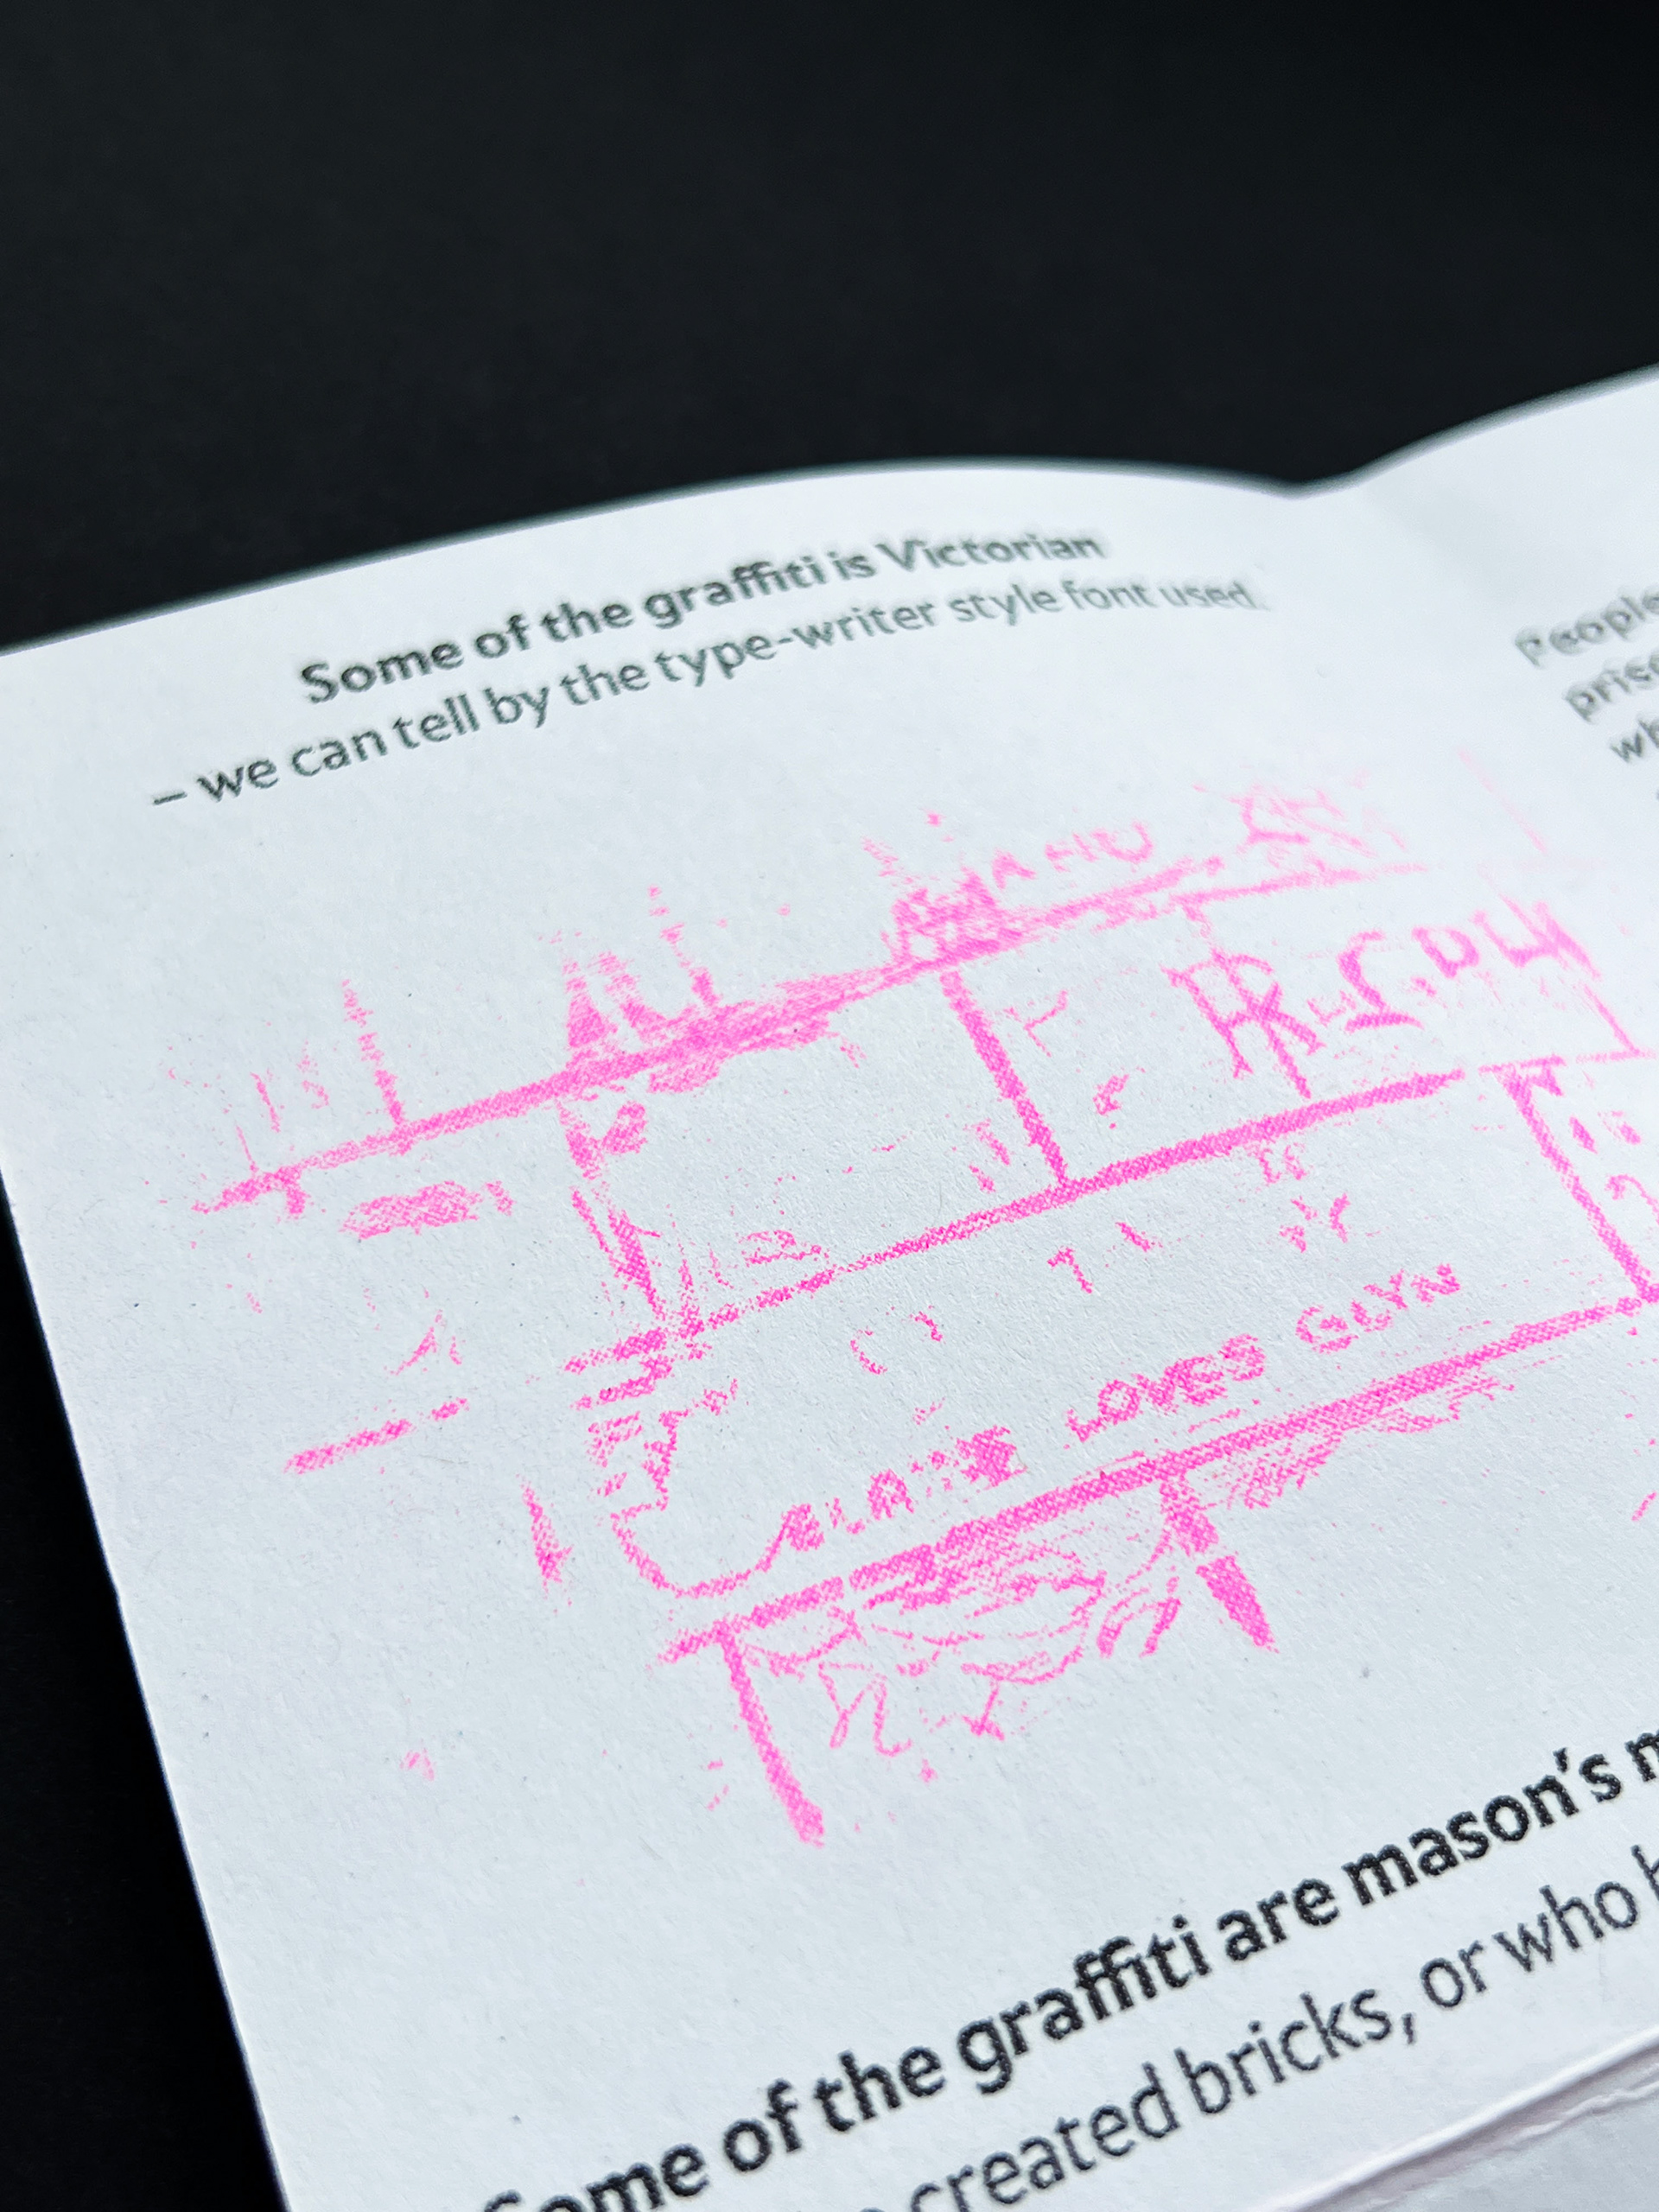 Some of the graffiti is Victorian
– we can tell by the type-writer style font used.
People
LOVES GLYN
Some of the graffiti are mason's
created bricks, or who